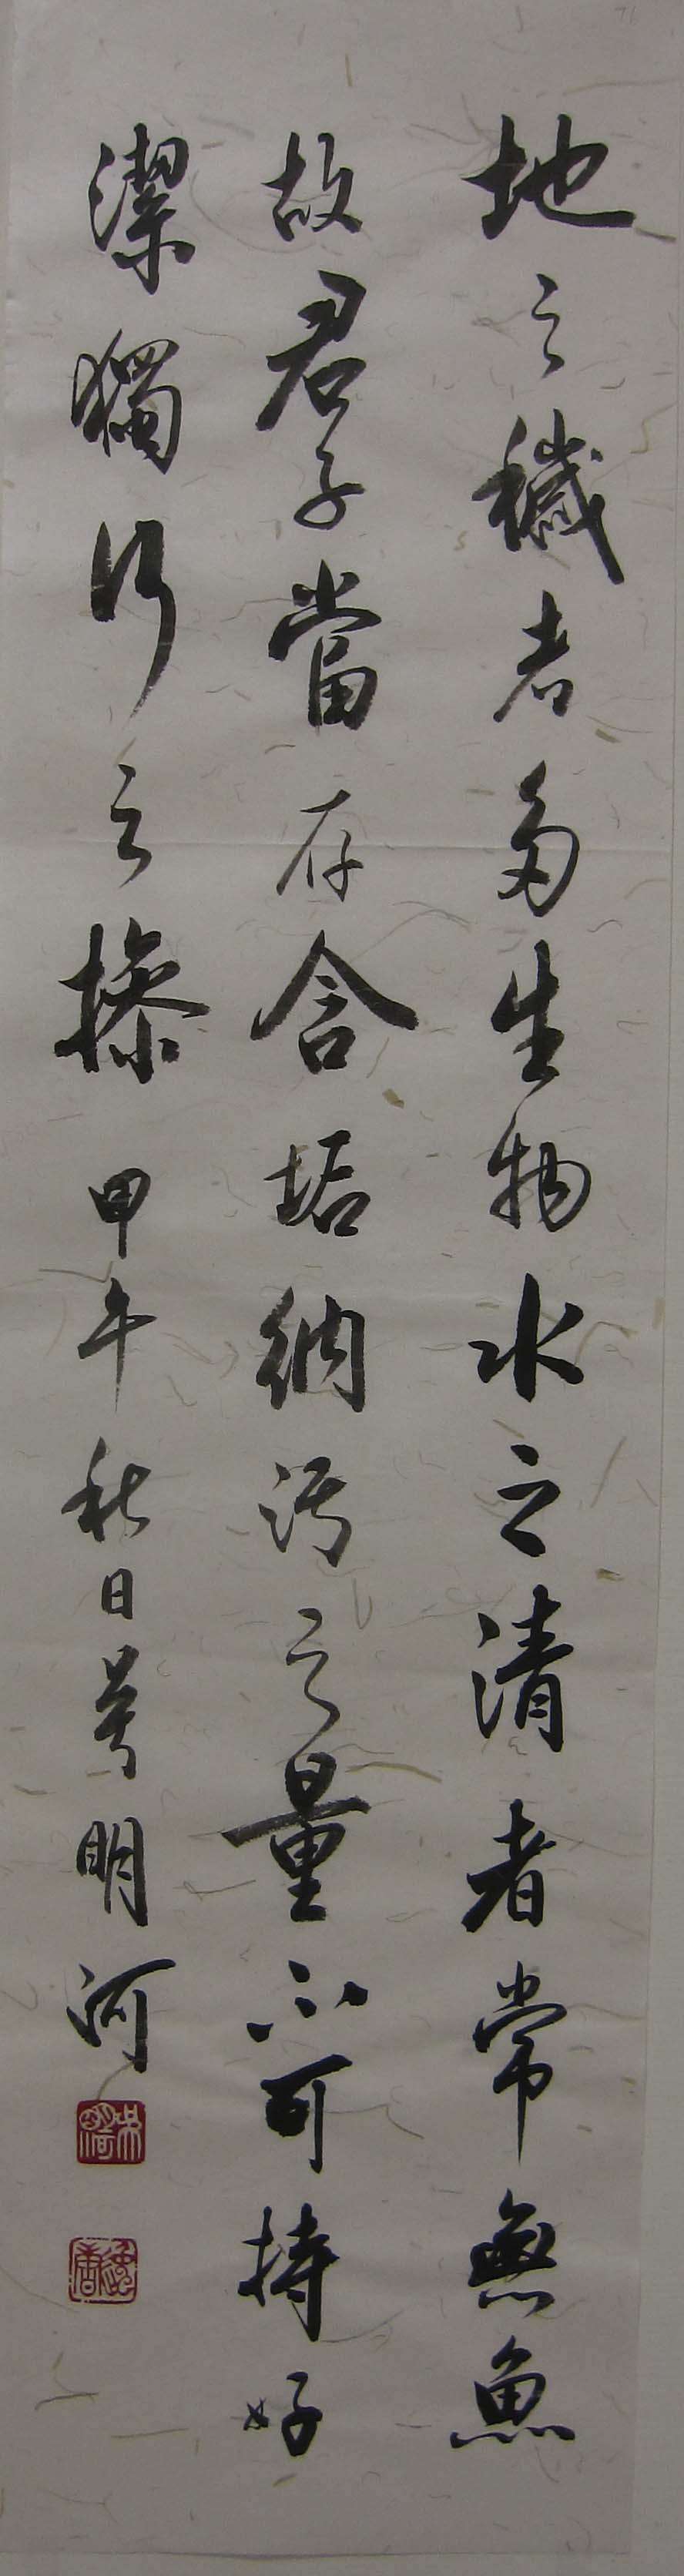 地之穢者多生物水之清者常無魚
故君子當存含垢納污之量不可持好
潔獨行之操 甲午秋日吳明河